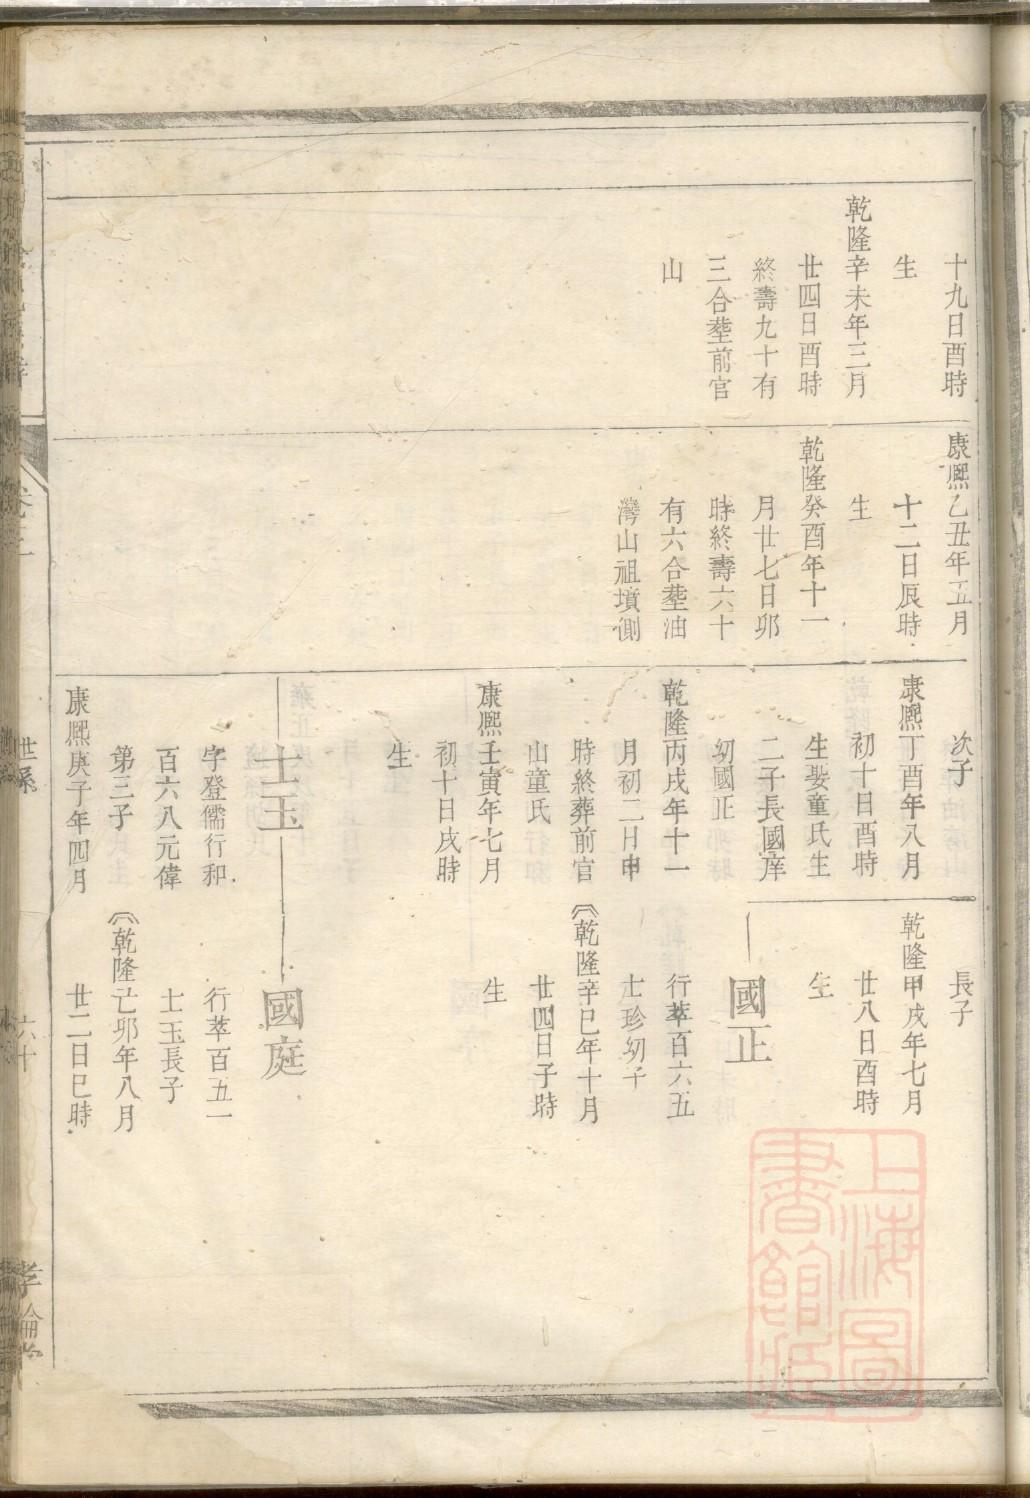 十九日酉時
生
乾隆辛未年三月
廿四日酉時
終壽九十有
三合塟前官
山
康熙乙丑年五月
十二日辰時
生
乾隆癸酉年十一
月廿七日卯
時終壽六十
有六合塟油
灣山祖墳側
次子
康熙丁酉年八月
初十日酉時
生娶童氏生
二子長國庠
幼國正
乾隆丙戌年十一
月初二日申
時終葬前官
山童氏行和
康熙壬寅年七月
初十日戌時
生
士玉
字登儒行和
百六八元偉
第三子
康熙庚子年四月
長子
乾隆甲戌年七月
廿八日酉時
生
國正
行萃百六五
士珍幼子
乾隆辛巳年十月
廿四日子時
生
國庭
行萃百五一
士玉長子
乾隆己卯年八月
廿二日巳時
卷三
世系
六十
孝倫堂
上海圖
書館藏